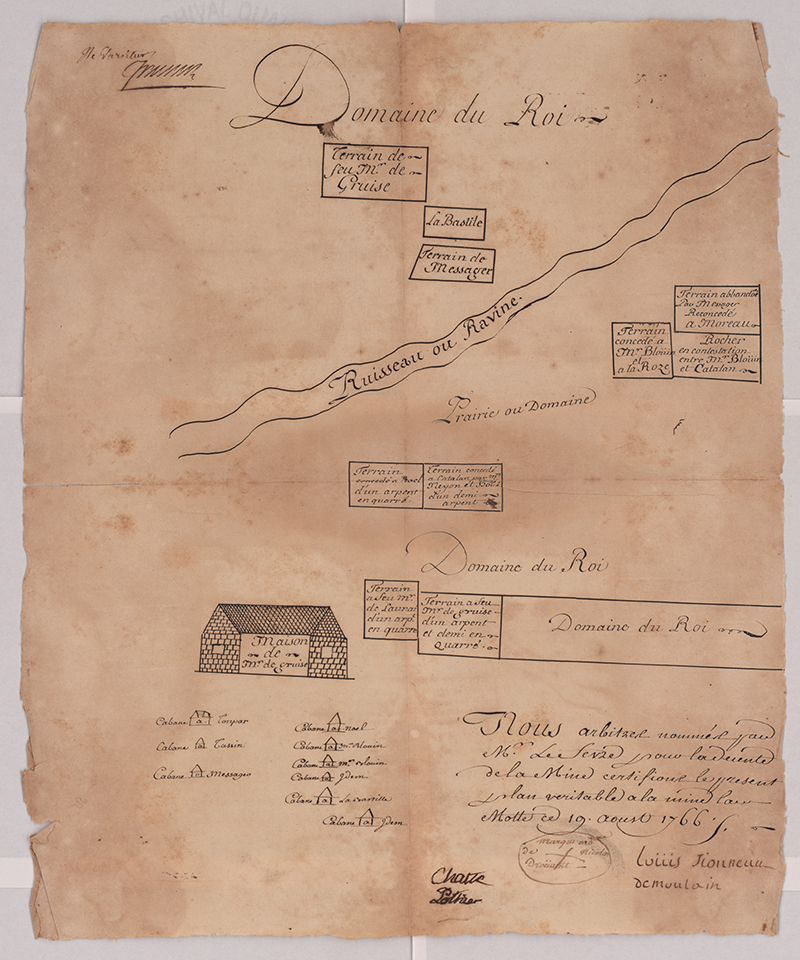 Ne Varietur
Domaine du Roi
Terrain de
feu Mr. de
Gruise
La Bastile
Terrain de
Messager
Terrain abbandoé
Par Mesager
Reconcedé
a Moreau
Terrain
concedé a
Mr. Bloüin
et
a la Roze
Rocher
en contestation
entre Mr. Bloüin
et Catalan
Ruisseau ou Ravine.
Prairie ou Domaine
Terrain
concedé a Noel
d'un arpent
en quarré
terrain concedé
a Catalan par Mrs
Neyon et
d'un demi
arpent
Domaine du Roi
Terrain
a feu Mr.
de Launai
d'un arpt.
en quarré
Terrain a feu
Mr. de gruise
d'un arpent
et demi en
Quarré.
Domaine du Roi
Maison
de
Mr. de gruise
Cabane Toupar
Cabane Tassin
Cabane Messager
Cabane Noel
Cabane Mr. Blouin
Cabane Mr. Blouin
Cabane Jdem
Cabane
Cabane Jdem
Nous arbitres nommés par
Mr. Le Sevre pour la
de la Mine certifions le present
plan veritable a la mine la
Motte ce 19. aoust 1766
marque
de Nicolas
Droüin
Loüis
demoulain